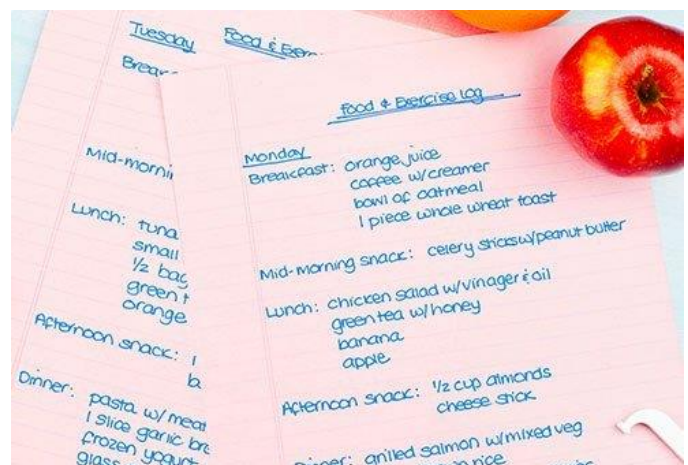 Tuesday Food & Exer
Mid-morni
Lunch: tuna
small
1/2 bag
green t
orange
Afternoon snack: 1
Dinner: pasta w/ meat
1 slice garlic bre
frozen yogurt
glass
Food & Exercise Log
Monday
Breakfast: orange juice
coffee w/creamer
bowl of oatmeal
1 piece whole wheat toast
Mid-morning snack: celery sticks w/peanut butter
Lunch: chicken salad w/vinager & oil
green tea w/honey
banana
apple
Afternoon snack: 1/2 cup almonds
cheese stick
Dinner: grilled salmon w/mixed veg
rice